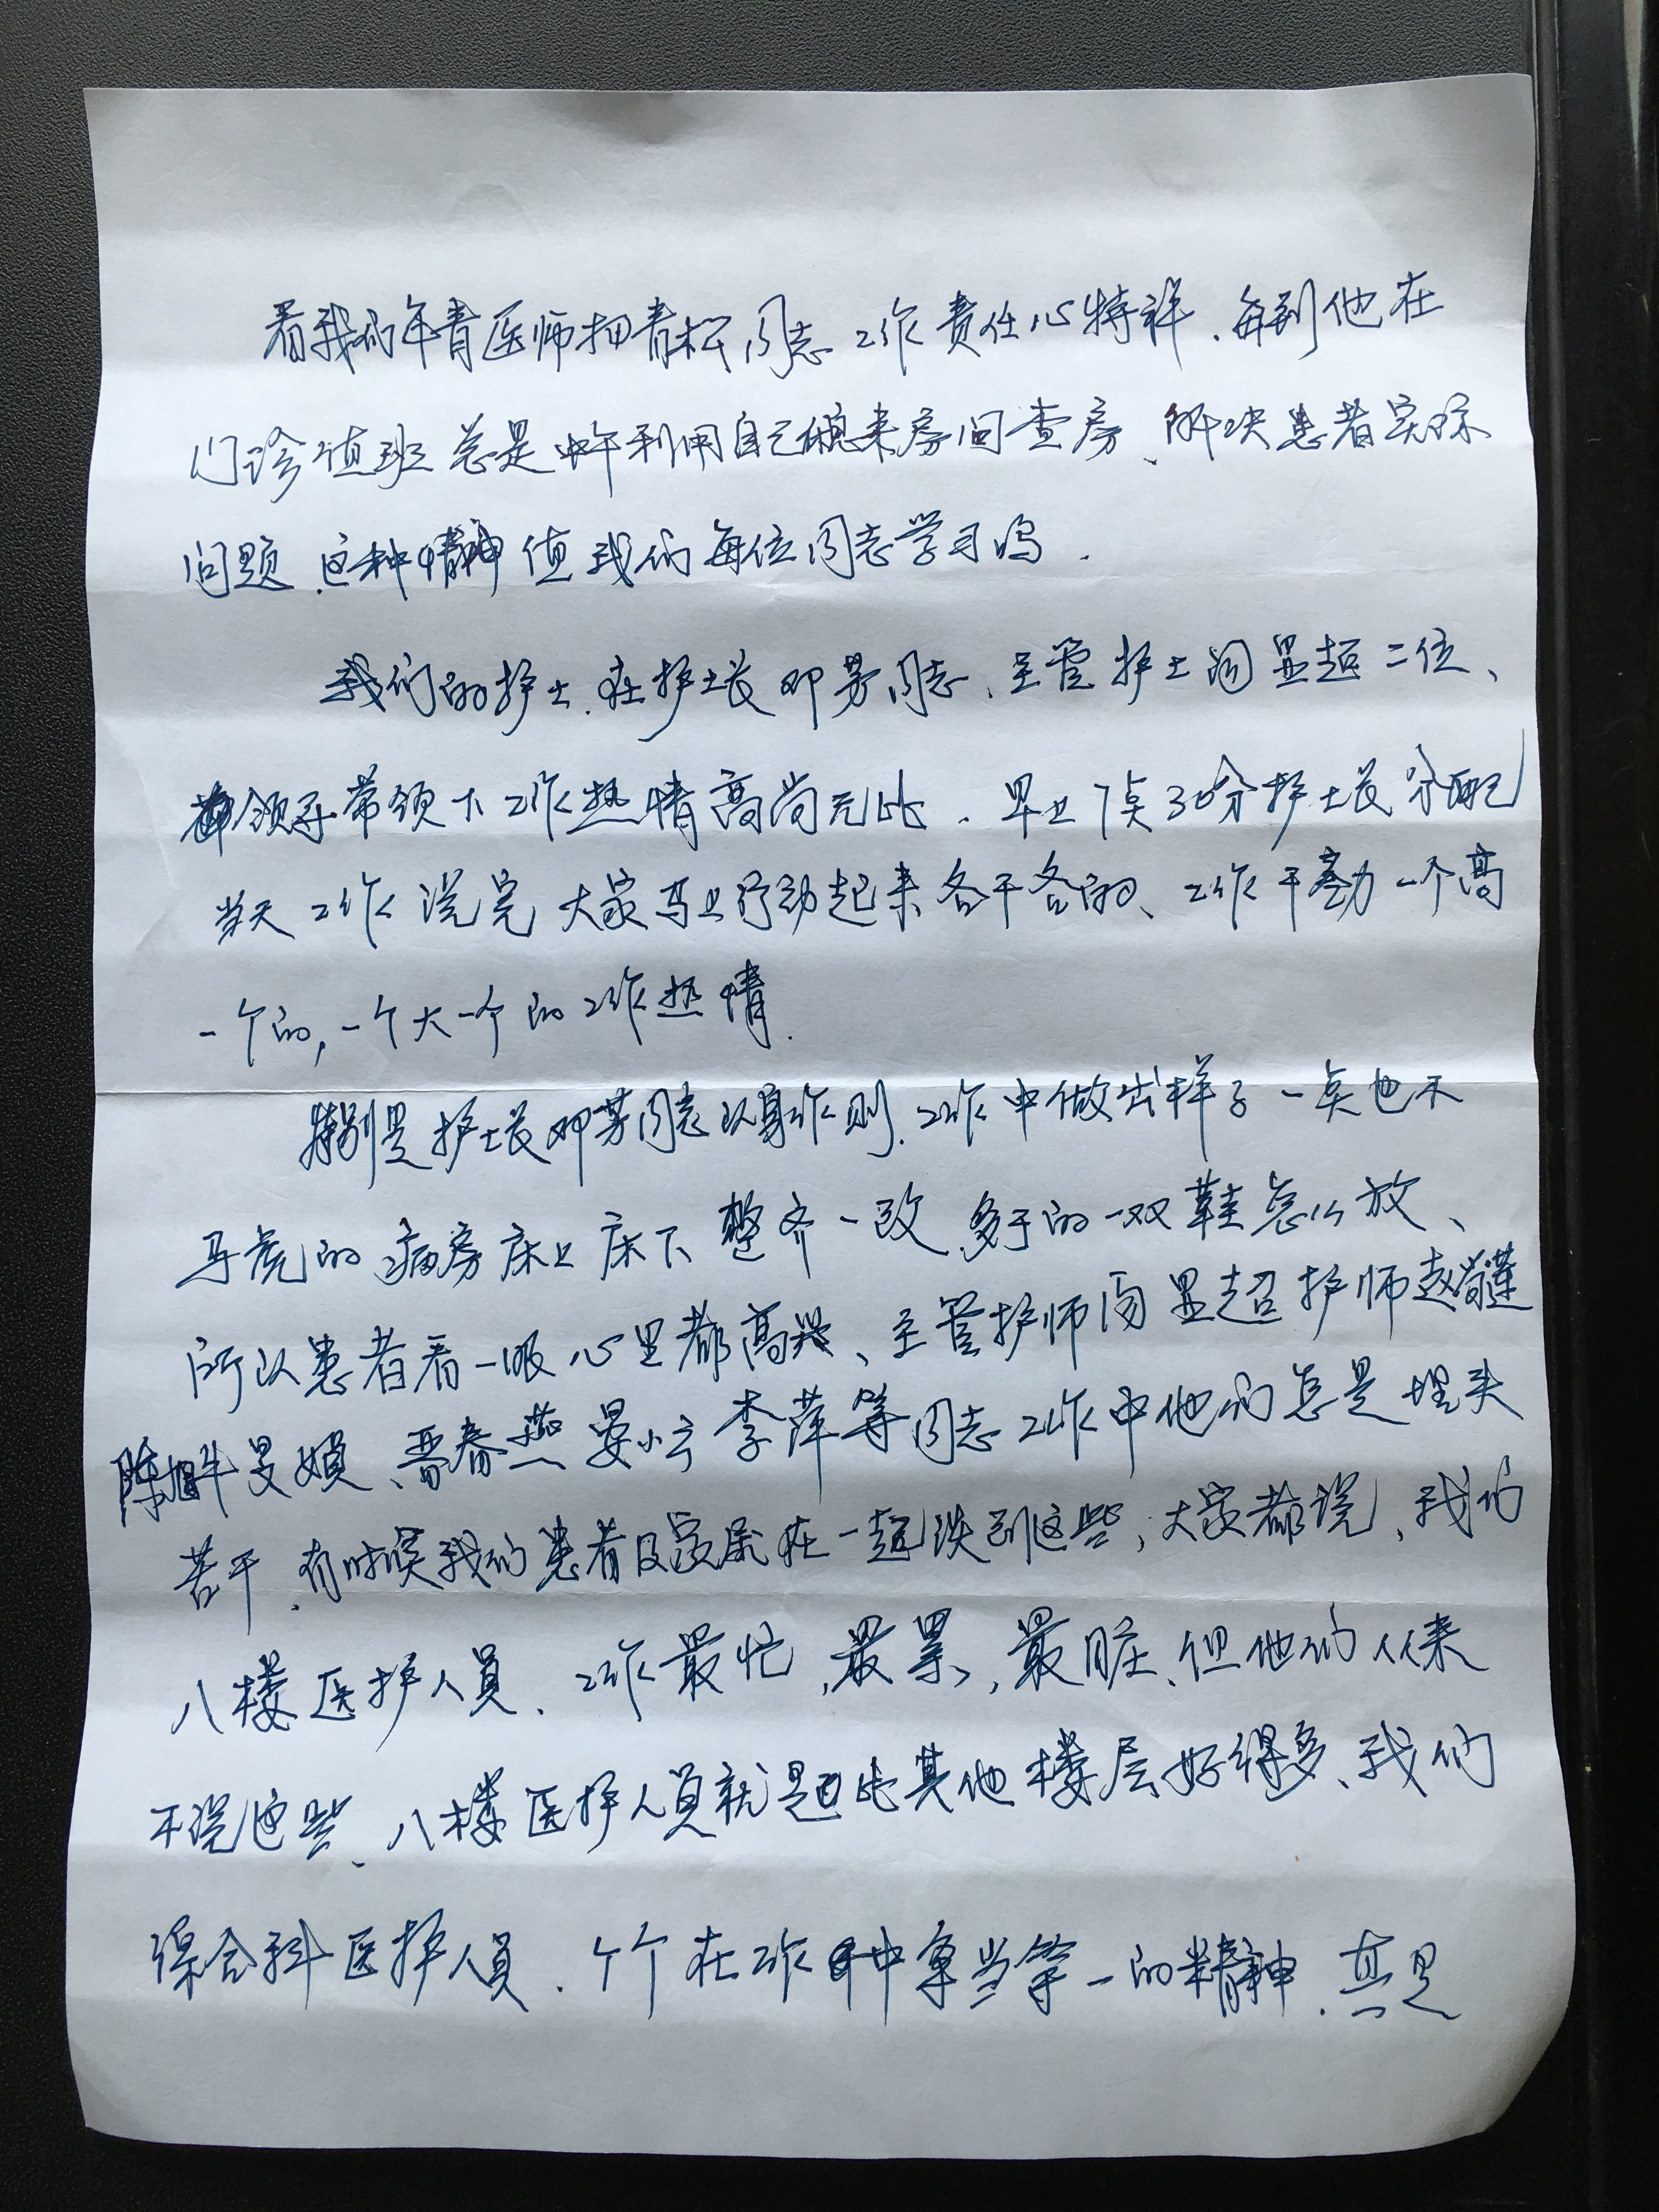 看我们年青医师把青松同志工作责任心特祥、每到他在
门诊值班总是中午利用自己休息来房间查房、解决患者实际
问题、这种精神值我们每位同志学习鸣.
我们的护士、在护士长邓芳同志、主管护士闵显超二位、
领导带领下工作热情高尚无比、早上7点30分护士长分配
当天工作说完大家马上行动起来各干各的、工作干劲一个高
一个的,一个大一个的工作热情.
特别是护士长邓芳同志以身作则、工作中做出样子一点也不
马虎的病房床上床下整齐一致、多于的一双鞋怎么放、
所以患者看一眼心里都高兴、主管护师闵显超护师赵
陈旭 晋春燕晏小云李萍等同志工作中他们总是埋头
苦干、有时候我们患者及家属在一起谈到这些,大家都说、我们
八楼医护人员、工作最忙,最累,最脏、但他们从来
不说这些、八楼医护人员就是比其他楼层好得多、我们
综合科医护人员、个个在工作中争当第一的精神、真是